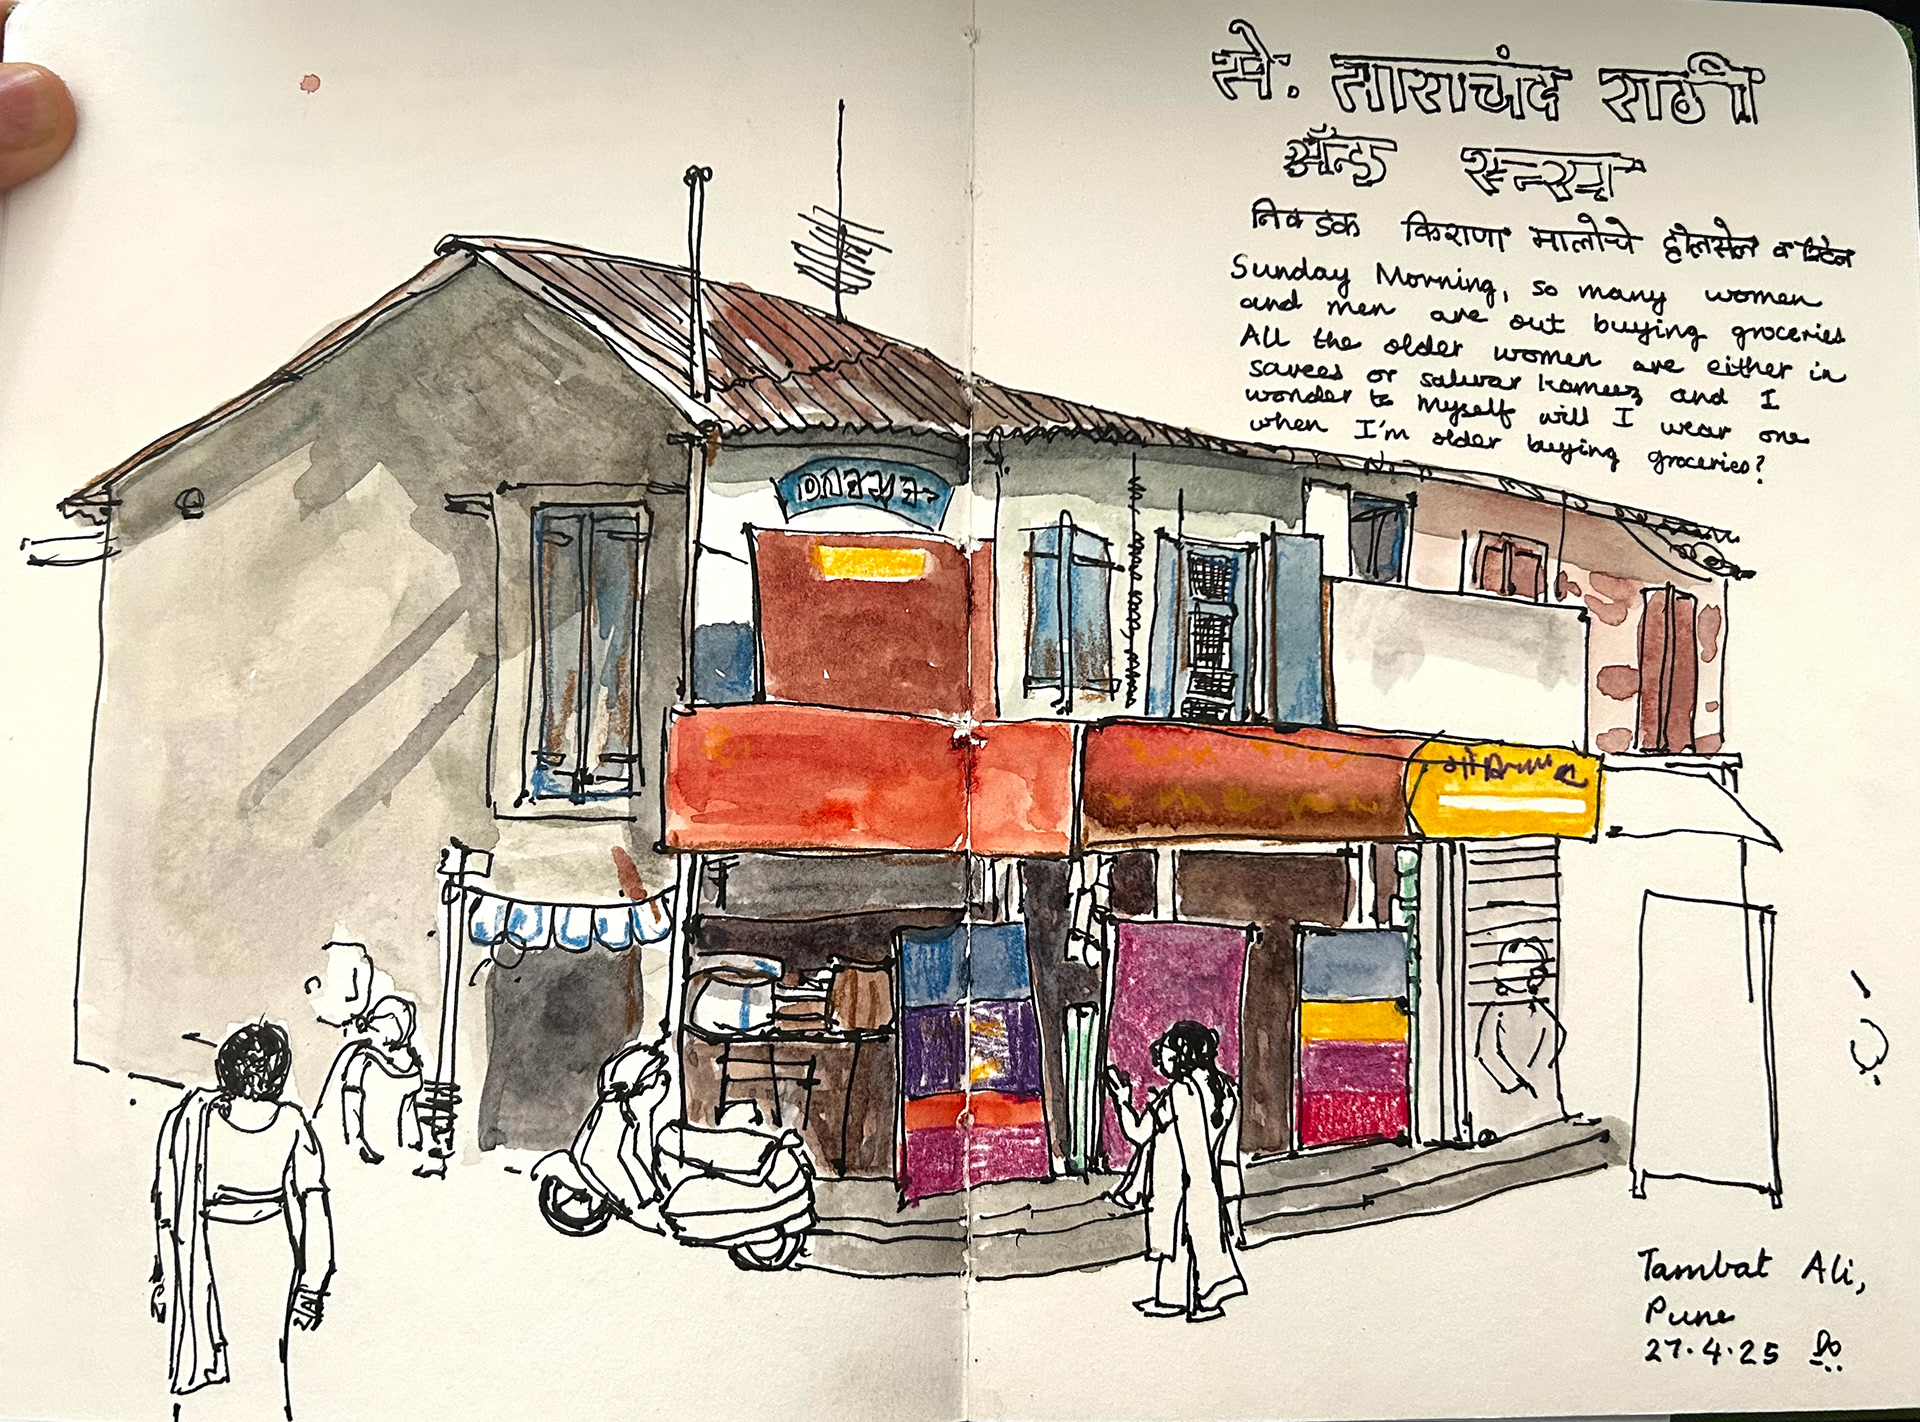 से. ताराचंद राठी
अ‍ॅन्ड सन्स
निवडक किराणा मालाचे होलसेल व रिटेल
Sunday Morning, so many women
and men are out buying groceries
All the older women are either in
sarees or salwar kameez and I
wonder to myself will I wear one
when I'm older buying groceries?
Tambat Ali,
Pune
27.4.25